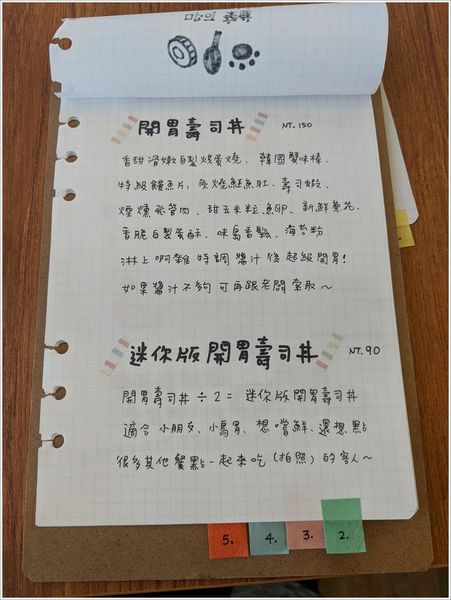 開胃壽司丼 NT.150
香甜滑嫩自製煨蛋燒、韓國蟹味棒、
特級鰻魚片、炙燒鮭魚肚、壽司蝦、
煙燻飛管肉、甜玉米粒、魚卵、新鮮蔥花、
香脆自製蛋酥、味島香鬆、海苔粉
淋上啊雜特調醬汁後超級開胃!
如果醬汁不夠可再跟老闆索取~
迷你版開胃壽司丼 NT.90
開胃壽司丼÷2= 迷你版開胃壽司丼
適合小朋友、小鳥胃、想嚐鮮、還想點
很多其他餐點一起來吃(拍照)的客人~
5. 4. 3. 2.